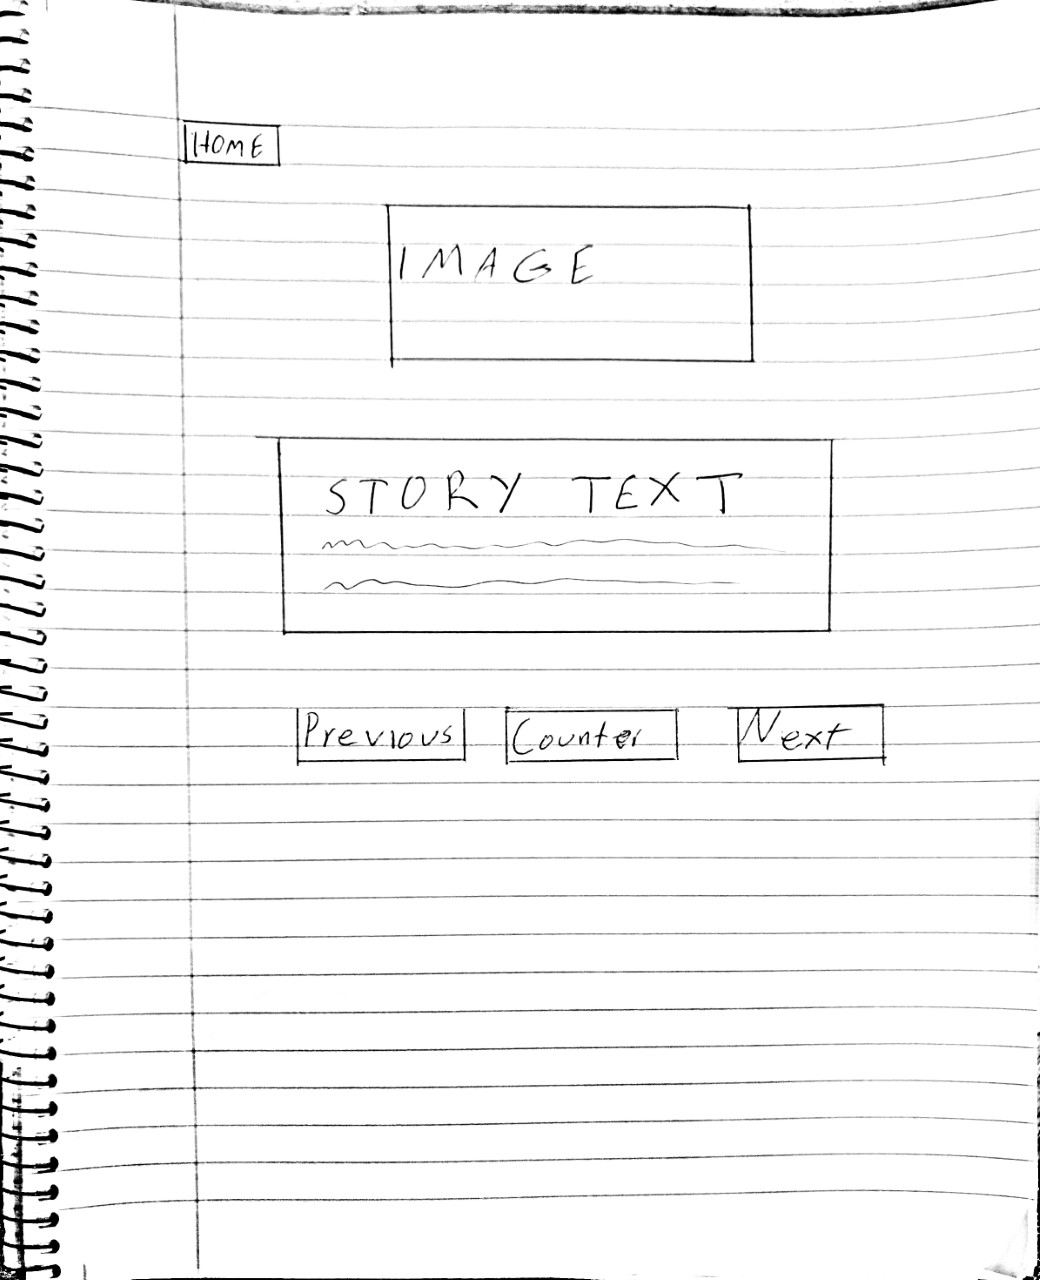 HOME
IMAGE
STORY TEXT
Previous Counter Next